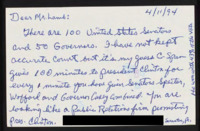 4/11/94
Dear Mr Lamb:
There are 100 United States Senators
and 50 Governors. I have not kept
accurate count but it's my guess C-Span
gives 100 minutes to president Clinton for
every 1 minute you have given Senators Specter,
Wofford and Governor Casey combined. You are
looking like a Public Relations firm promoting
Pres. Clinton.